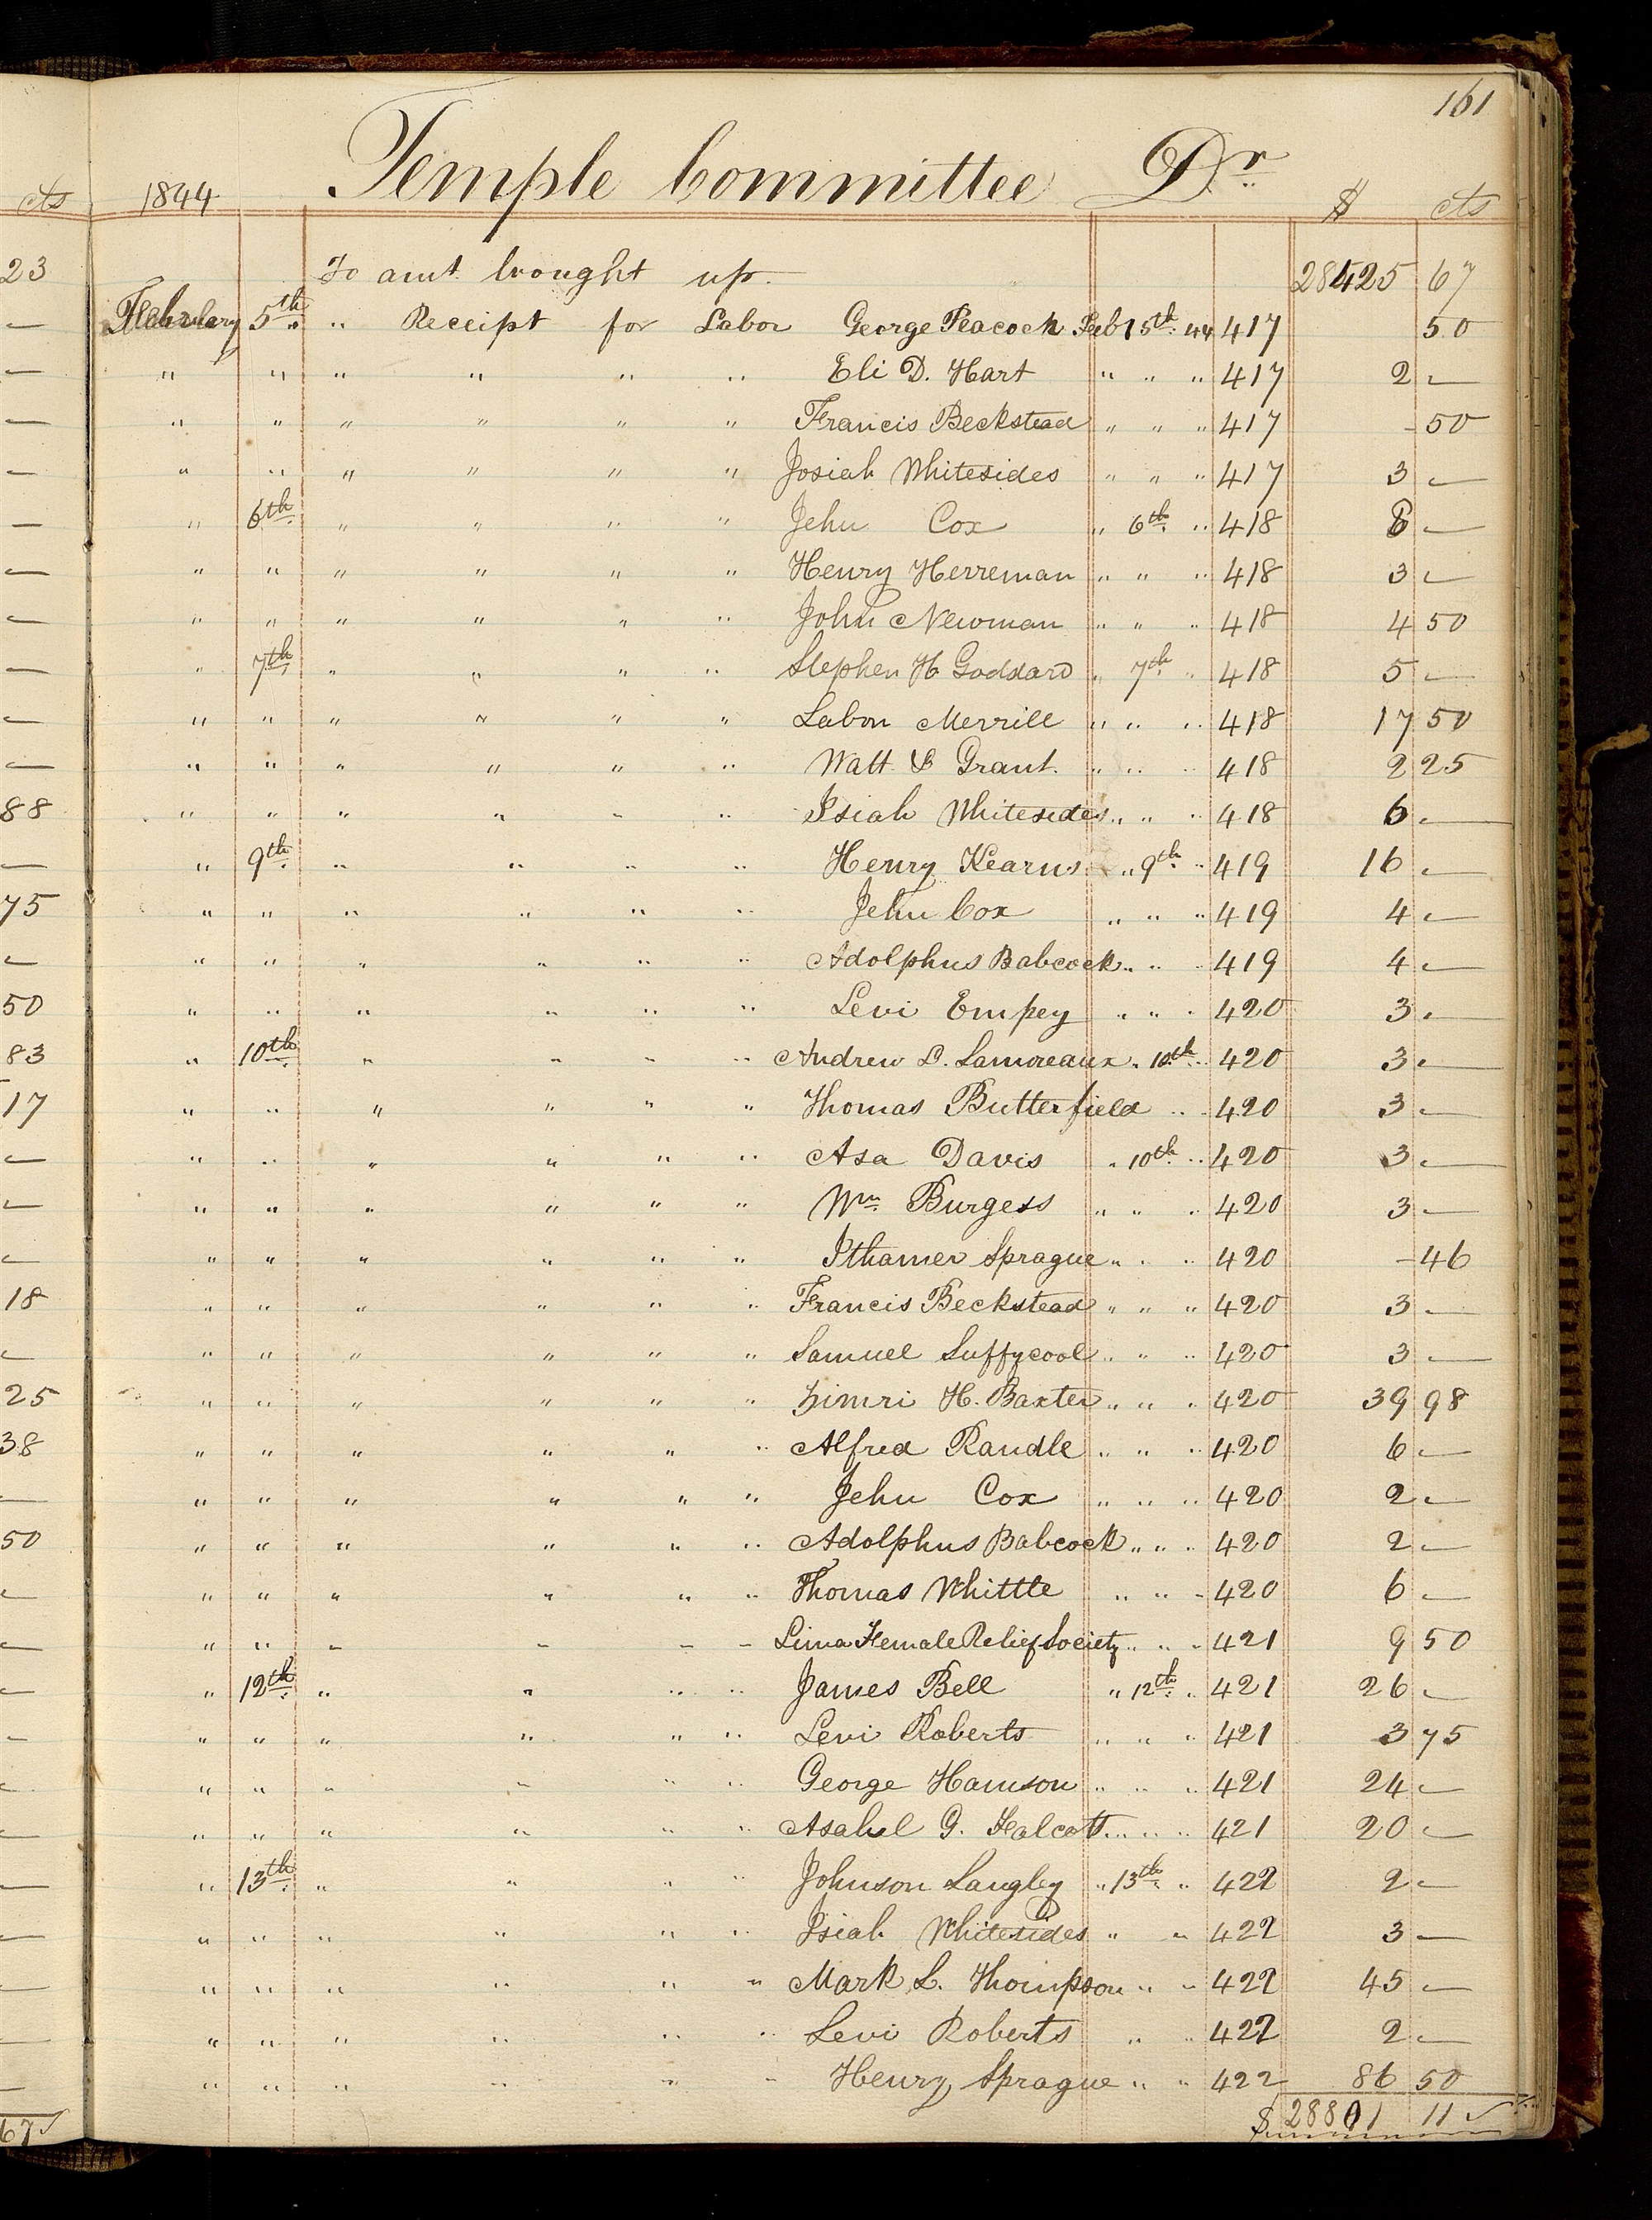 161
cts 1844 Temple Committee Dr $ cts
23 To amt brought up. 28425 67
— February 5th " Receipt for Labor George Peacock Feb 15th 44 417 50
— " " " " " " Eli D. Hart " " " 417 2 —
— " " " " " " Francis Beckstead " " " 417 - 50
— " " " " " " Josiah Whitesides " " " 417 3 —
— " 6th " " " " Jehu Cox " 6th " 418 —
— " " " " " " Henry Herreman " " " 418 3 —
— " " " " " " John Newman " " " 418 4 50
— " 7th " " " " Stephen H Goddard " 7th " 418 5 —
— " " " " " " Labon Merrill " " " 418 17 50
— " " " " " " Watt & Grant. " " " 418 2 25
88 " " " " " " Isiah Whitesides " " " 418 6 —
— " 9th " " " " Henry Kearns " 9th " 419 16 —
75 " " " " " " Jehu Cox " " " 419 4 —
— " " " " " " Adolphus Babcock " " " 419 4 —
50 " " " " " " Levi Empey " " " 420 3 —
83 " 10th " " " " Andrew L. Lamoreaux " 10th " 420 3 —
17 " " " " " " Thomas Butterfield " " 420 3 —
— " " " " " " Asa Davis " 10th " 420 3 —
— " " " " " " Wm Burgess " " " 420 3 —
— " " " " " " Ithamer Sprague " " " 420 - 46
18 " " " " " " Francis Beckstead " " " 420 3 —
— " " " " " " Samuel Suffycool " " " 420 3 —
25 " " " " " " Zimri H. Baxter " " " 420 39 98
38 " " " " " " Alfred Randle " " " 420 6 —
— " " " " " " Jehu Cox " " " 420 2 —
50 " " " " " " Adolphus Babcock " " " 420 2 —
— " " " " " " Thomas Whittle " " " 420 6 —
— " " " " " " Lima Female Relief Society " " " 421 9 50
— " 12th " " " " James Bell " 12th " 421 26 —
— " " " " " " Levi Roberts " " " 421 3 75
— " " " " " " George Hamson " " " 421 24 —
— " " " " " " Asahel G. Falcott " " " 421 20 —
— " 13th " " " " Johnson Langley " 13th " 422 2 —
— " " " " " " Isiah Whitesides " " 422 3 —
— " " " " " " Mark L. Thompson " " 422 45 —
— " " " " " " Levi Roberts " " 422 2 —
— " " " " " " Henry Sprague " " 422 86 50
67 $ 28801 11